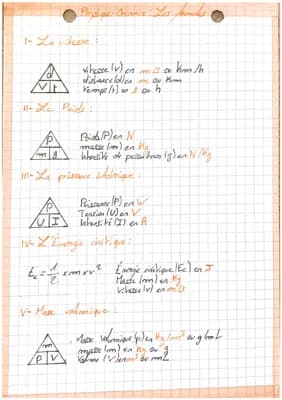 Physique-Chimie : Les formules
I- La vitesse :
d
V t
vitesse (v) en m/s ou km/h
distance (d) en m ou km
temps (t) en s ou h
II- Le Poids :
P
m g
Poids (P) en N
masse (m) en Kg
intensité de pesanteur (g) en N/Kg
III- La puissance électrique :
P
U I
Puissance (P) en W
Tension (U) en V
Intensité (I) en A
IV- L'Énergie cinétique :
Ec = 1/2 x m x v²
Énergie cinétique (Ec) en J
Masse (m) en Kg
vitesse (v) en m/s
V- Masse volumique :
m
ρ V
Masse volumique (ρ) en Kg/m³ ou g/mL
masse (m) en Kg ou g
Volume (V) en m³ ou mL